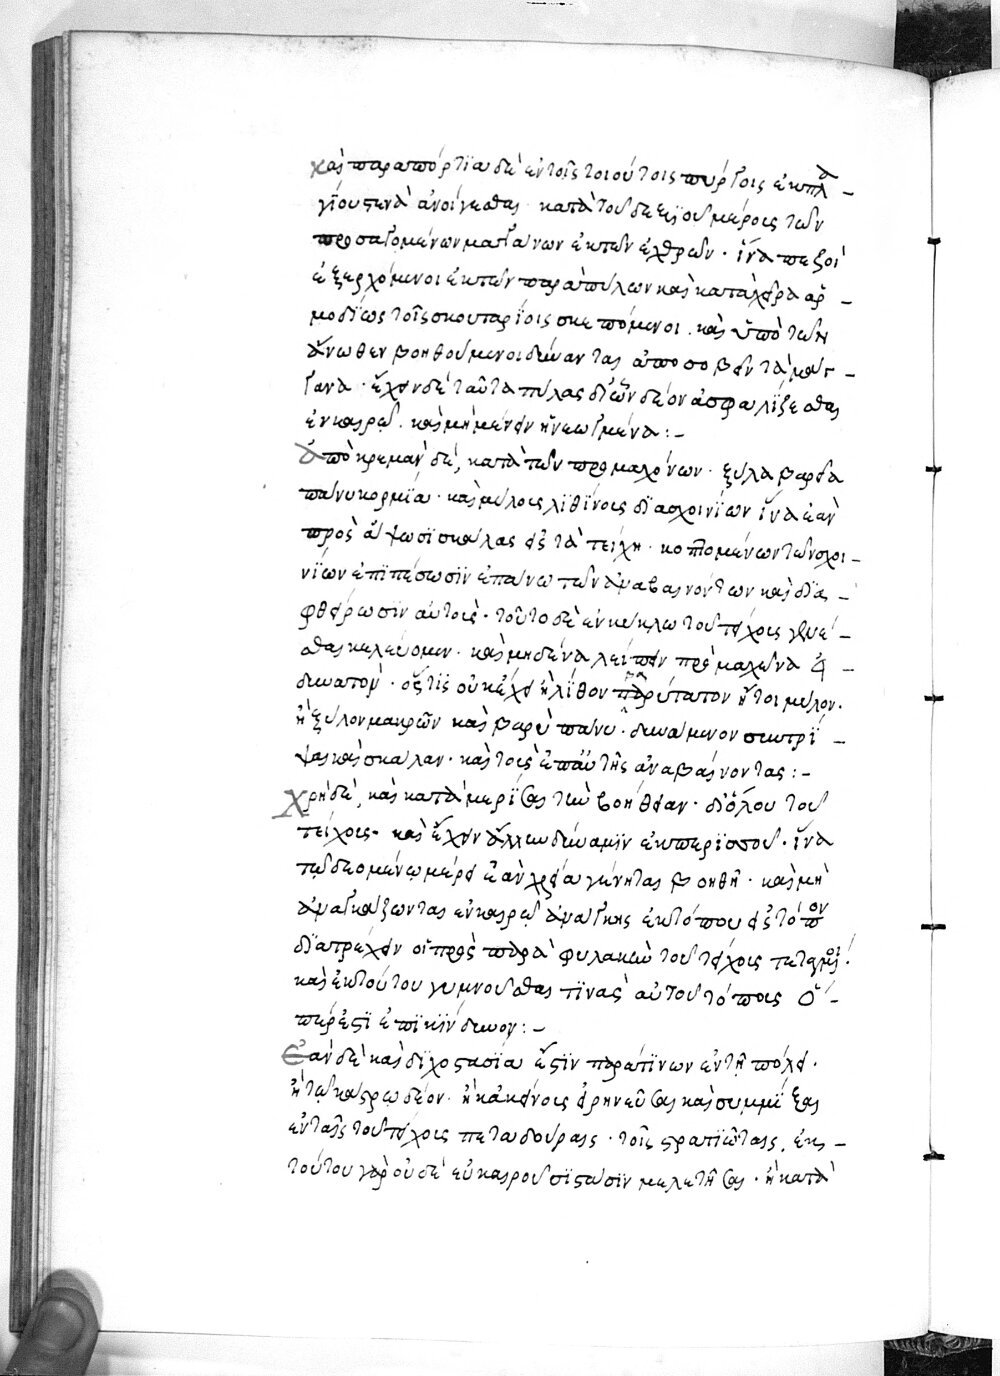 καὶ παραπόρτϊα δὲ ἐν τοῖς τοιούτοις πύργοις ἐκ πλα
γίου τινὰ ἀνοίγεσθαι · κατὰ τοῦ δεξϊοῦ μέρους τῶν
προσαγομένων μαγγάνων ἐκ τῶν ἐχθρῶν · ἵνα πεζοὶ
ἐξερχόμενοι ἐκ τῶν παραπύλων καὶ κατὰ χεῖρα ἁρ
μοδΐως τοῖς σκουταρΐοις σκεπόμενοι · καὶ ὑπὸ τῶν
ἄνωθεν βοηθούμενοι δύνανται ἀποσοβεῖν τὰ μάγ
γανα · ἔχειν δὲ ταῦτα πύλας δι' ὧν δέον ἀσφαλίζεσθαι
ἐν καιρῷ · καὶ μὴ μένειν ἠνεωγμένα :-
Ἀποκρεμᾶν δὲ, κατὰ τῶν προμαχόνων · ξύλα βαρέα
πάνυ κορμΐα · καὶ μύλους λιθίνους διὰ σχοινΐων ἵνα ἐὰν
προσάψωσι σκάλας εἰς τὰ τείχη · κοπτομένων τῶν σχοι
νΐων ἐπιπέσωσϊν ἐπάνω τῶν ἀναβαινόντων καὶ δϊα
φθείρωσϊν αὐτούς · τοῦτο δὲ ἐν κύκλω τοῦ τείχους γενέ
σθαι κελεύομεν · καὶ μηδένα λείπειν προμαχεῶνα εἰ
δυνατὸν · ὅστις οὐκ ἔχει ἢ λίθον βαρύτατον ἤτοι μύλον ·
ἢ ξύλον μακρὸν καὶ βαρὺ πάνυ · δυνάμενον συντρΐ
ψαι καὶ σκάλαν · καὶ τοὺς ἐπ' αὐτῆς ἀναβαίνοντας :-
Χρὴ δὲ, καὶ καταμερΐσαι τὴν βοήθειαν · δι' ὅλου τοῦ
τείχους · καὶ ἔχειν ἄλλην δύναμϊν ἐκ περισσοῦ · ἵνα
τῷ δεομένῳ μέρει ἐὰν χρεία γένηται βοηθῆ · καὶ μὴ
ἀναγκάζωνται ἐν καιρῷ ἀνάγκης ἐκ τόπου εἰς τόπον
δϊατρέχειν οἱ πρὸς παραφυλακὴν τοῦ τείχους τεταγμένοι ·
καὶ ἐκ τούτου γυμνοῦσθαι τϊνὰς αὐτοῦ τόπους ὅ
περ ἐστϊ ἐπϊκΐνδυνον :-
Ἐὰν δὲ καὶ διχοστασΐα ἐστϊν παρά τϊνων ἐν τῇ πόλει ·
ἢ τῷ κάστρῳ δέον · ἢ κἀκείνους εἰρηνεῦσαι καὶ συμμΐξαι
ἐν ταῖς τοῦ τείχους πεταδούραις · τοῖς στρατϊώταις · ἐκ
τούτου γὰρ οὐδὲ εὐκαιροῦσϊ στάσϊν μελετῆσαι · ἢ κατὰ